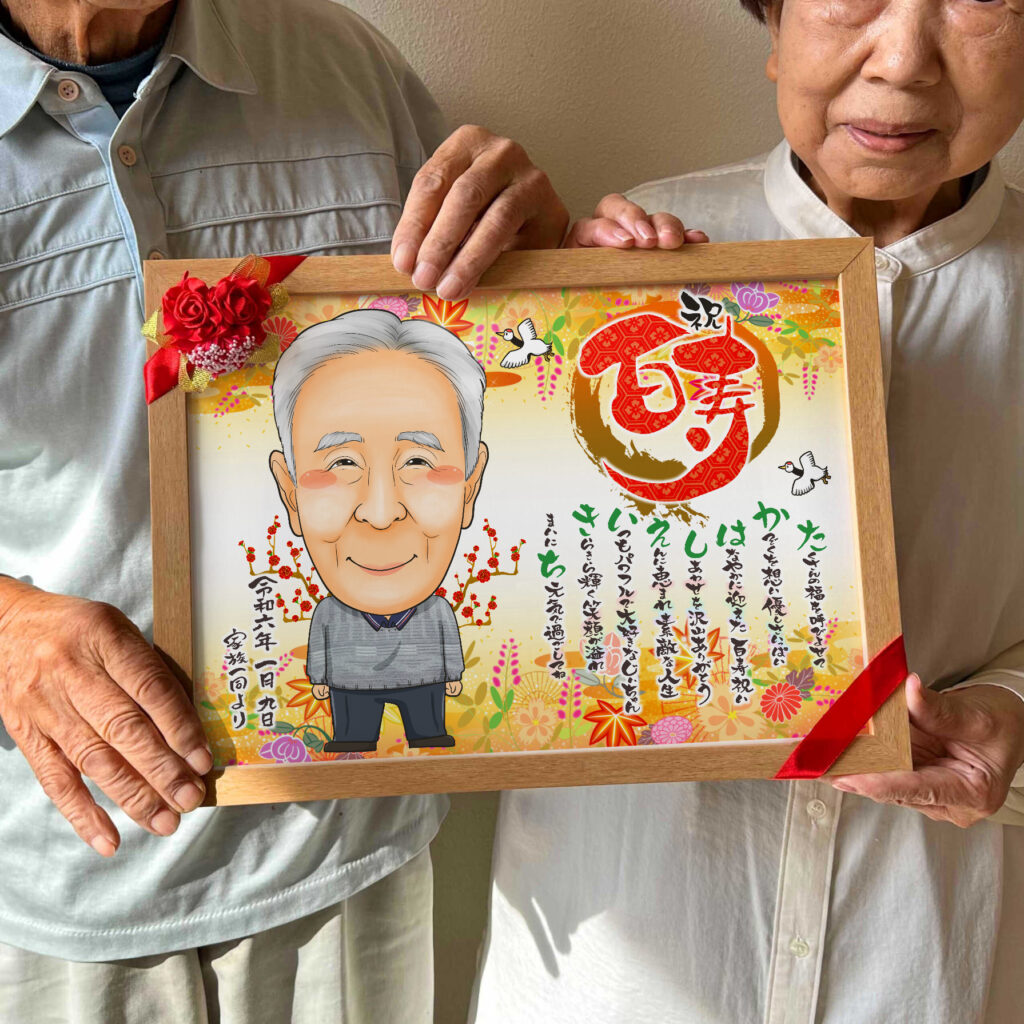 祝
百寿
たくさんの福を呼びよせて
かぞくを想い優しさいっぱい
はなやかに迎えました百寿祝い
しあわせを沢山ありがとう
えんに恵まれ素敵な人生
いつもパワフルで大好きなじいちゃん
きらきら輝く笑顔が溢れ
まいにち元気で過ごしてね
令和六年 一月九日
家族一同より